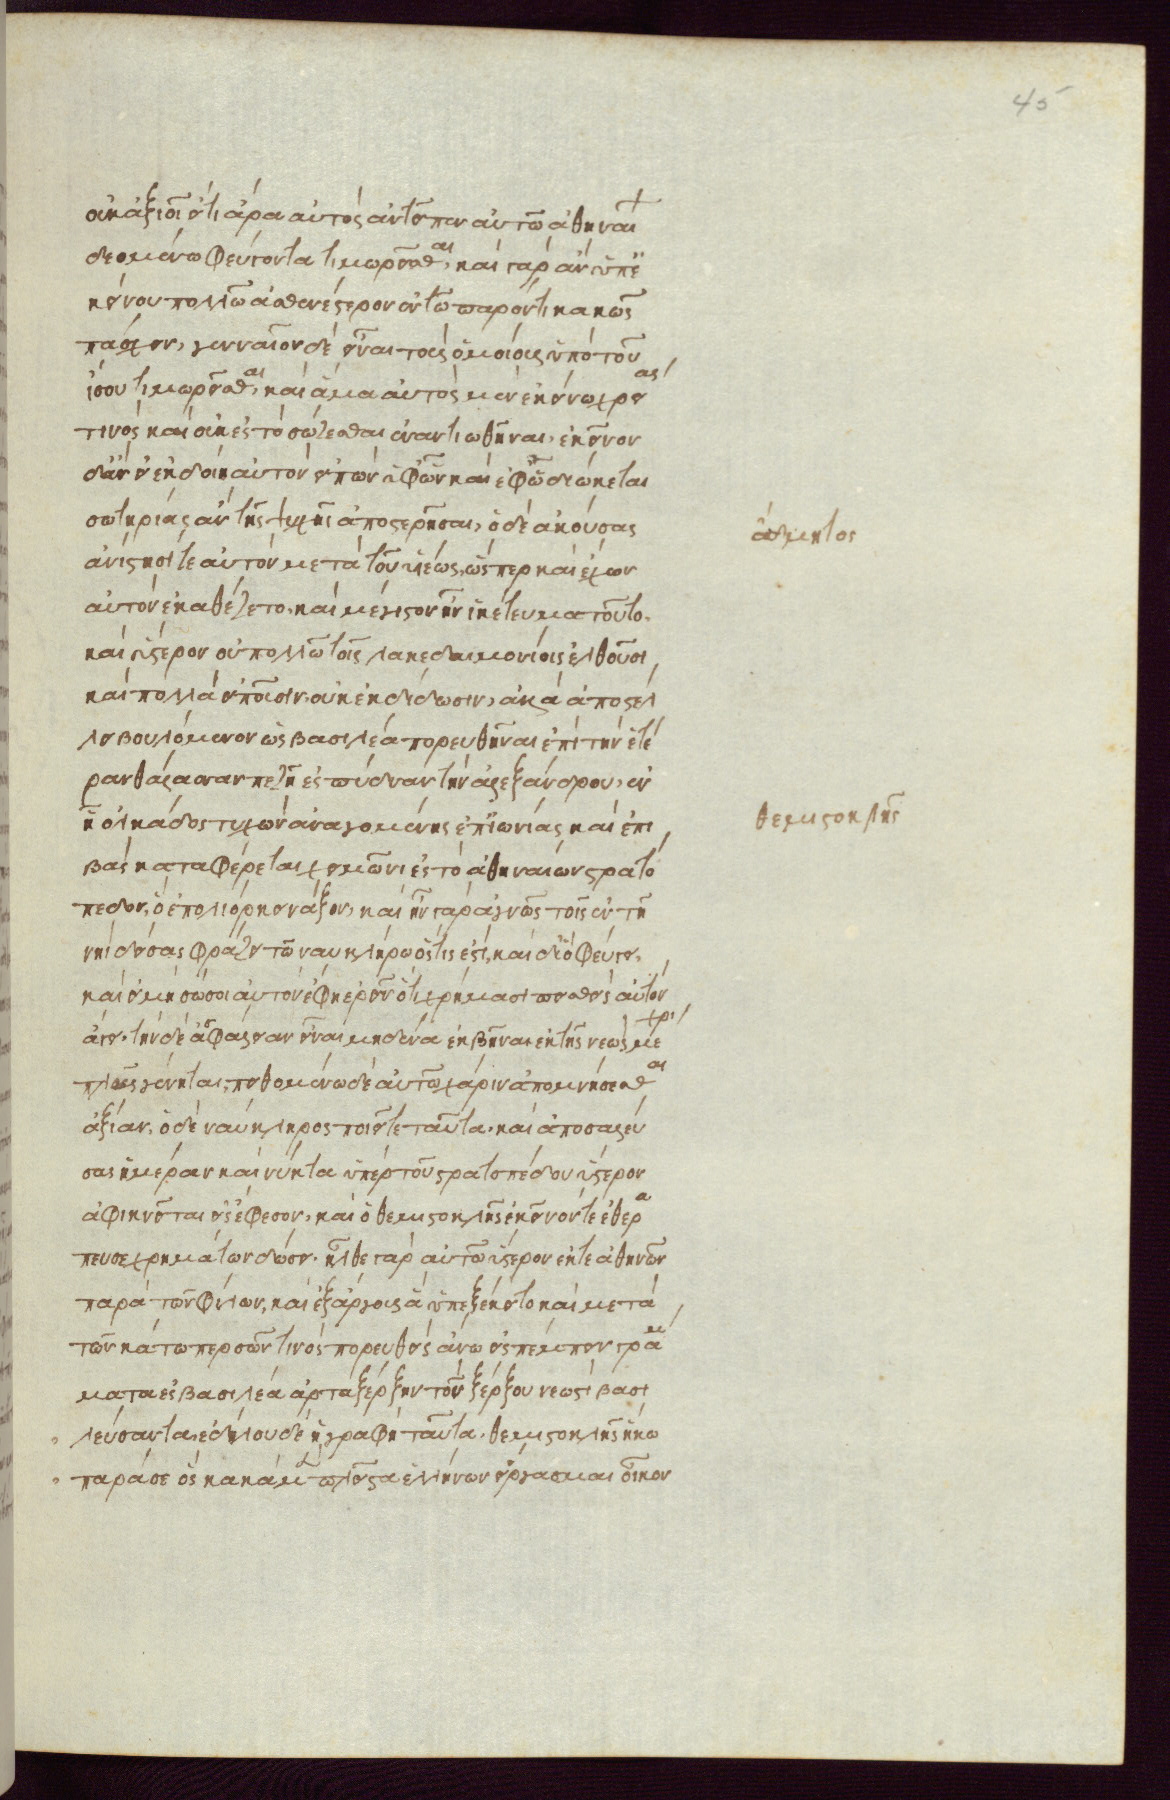 οὐκ ἀξιοῖ εἴ τι ἄρα αὐτὸς ἀντεῖπεν αὐτῶ ἀθηναί
δεομένω φεύγοντα τιμωρεῖσθαι, καὶ γὰρ ἂν ὑπ' ἐ
κείνου πολλῶ ἀσθενέστερον ἐν τῶ παρόντι κακῶς
πάσχειν, γενναῖον δὲ εἶναι τοὺς ὁμοίους ὑπὸ τοῦ
ἴσου τιμωρεῖσθαι, καὶ ἅμα αὐτὸς μὲν ἐκείνω χρείας
τινὸς καὶ οὐκ ἐς τὸ σώζεσθαι ἐναντιωθῆναι, ἐκεῖνον
δ' ἂν εἰ ἐκδοίη αὐτὸν εἰπὼν ὑφ' ὧν καὶ ἐφ' ὧ διώκεται
σωτηρίας ἂν τῆς ψυχῆς ἀποστερῆσαι, ὁ δὲ ἀκούσας
ἀνίστησί τε αὐτὸν μετὰ τοῦ υἱέως, ὥσπερ καὶ ἔχων
αὐτὸν ἐκαθέζετο, καὶ μέγιστον ἦν ἱκέτευμα τοῦτο.
καὶ ὕστερον οὐ πολλῶ τοῖς λακεδαιμονίοις ἐλθοῦσι
καὶ πολλὰ εἰποῦσιν, οὐκ ἐκδίδωσιν, ἀλλὰ ἀποστέλ
λει βουλόμενον ὡς βασιλέα πορευθῆναι ἐπὶ τὴν ἑτέ
ραν θάλασσαν πεζῆ ἐς πύδναν τὴν ἀλεξάνδρου, ἐν
ἧ ὁλκάδος τυχὼν ἀναγομένης ἐπ' ἰωνίας καὶ ἐπι
βὰς καταφέρεται χειμῶνι ἐς τὸ ἀθηναίων στρατό
πεδον, ὃ ἐπολιόρκει νάξον, καὶ ἦν γὰρ ἀγνῶς τοῖς ἐν τῆ
νηὶ δείσας φράζει τῶ ναυκλήρω ὅστις ἐστὶ, καὶ δι' ὃ φεύγει,
καὶ εἰ μὴ σώσοι αὐτὸν ἔφη ἐρεῖν ὅτι χρήμασι πεισθεὶς αὐτὸν
ἄγει. τὴν δὲ ἀσφάλειαν εἶναι μηδένα ἐκβῆναι ἐκ τῆς νεὼς μέχρι
πλοῦς γένηται, πειθομένω δὲ αὐτῶ χάριν ἀπομνήσεσθαι
ἀξίαν, ὁ δὲ ναύκληρος ποιεῖ τε ταῦτα, καὶ ἀποσαλεύ
σας ἡμέραν καὶ νύκτα ὑπὲρ τοῦ στρατοπέδου ὕστερον
ἀφικνεῖται εἰς ἔφεσον, καὶ ὁ θεμιστοκλῆς ἐκεῖνόν τε ἐθερά
πευσε χρημάτων δόσει. ἦλθε γὰρ αὐτῶ ὕστερον ἔκ τε ἀθηνῶν
παρὰ τῶν φίλων, καὶ ἐξ ἄργους ἃ ὑπεξέκειτο καὶ μετὰ
τῶν κάτω περσῶν τινὸς πορευθεὶς ἄνω ἐσπέμπει γράμ
ματα ἐς βασιλέα ἀρταξέρξην τὸν ξέρξου νεωστὶ βασι
λεύσαντα, ἐδήλου δὲ ἡ γραφὴ ταῦτα. θεμιστοκλῆς ἥκω
παρὰ σὲ ὃς κακὰ μὲν πλεῖστα ἑλλήνων εἴργασμαι οἶκον
ἄδμητος
θεμιστοκλῆς
45